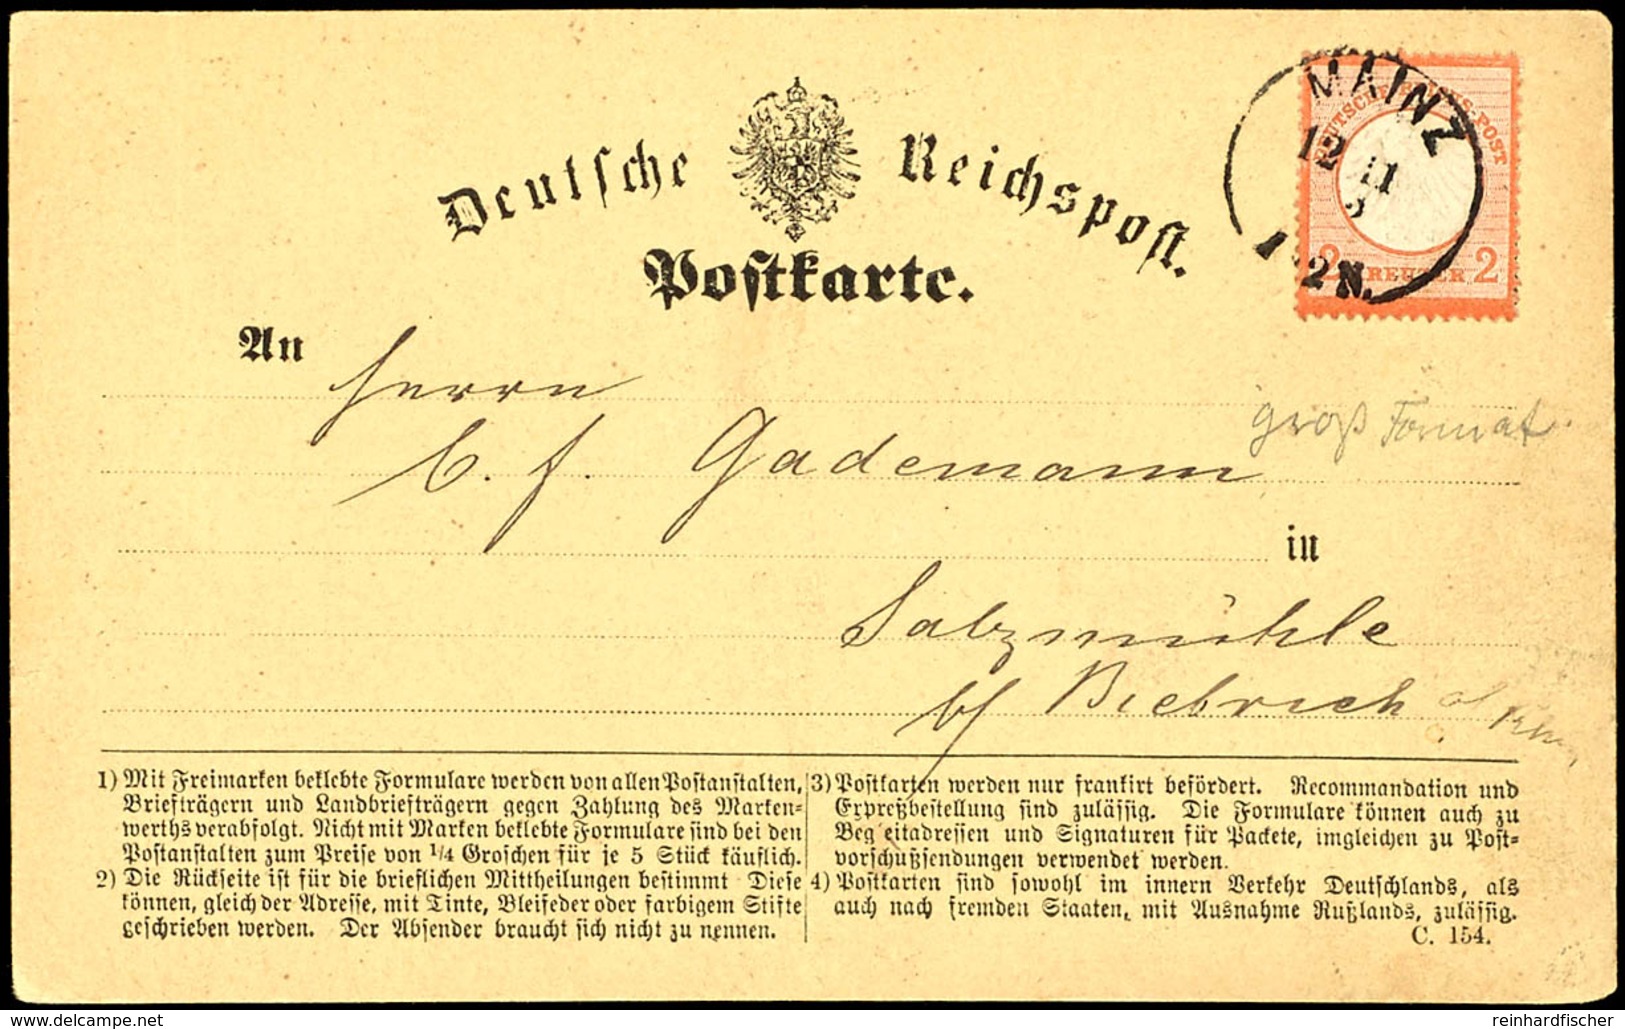 Deutsche Reichspost.
Postkarte.
MAINZ
12 11
1-2N.
DEUTSCHE REICHS-POST
2 KREUZER 2
An
Herrn
C. F. Gademann
groß Format
in
Salzmühle
b/ Biebrich
1) Mit Freimarken beklebte Formulare werden von allen Postanstalten,
Briefträgern und Landbriefträgern gegen Zahlung des Marken-
werths verabfolgt. Nicht mit Marken beklebte Formulare sind bei den
Postanstalten zum Preise von 1/4 Groschen für je 5 Stück käuflich.
2) Die Rückseite ist für die brieflichen Mittheilungen bestimmt Diese
können, gleich der Adresse, mit Tinte, Bleifeder oder farbigem Stifte
geschrieben werden. Der Absender braucht sich nicht zu nennen.
3) Postkarten werden nur frankirt befördert. Recommandation und
Expreßbestellung sind zulässig. Die Formulare können auch zu
Beg eitadressen und Signaturen für Packete, imgleichen zu Post-
vorschußsendungen verwendet werden.
4) Postkarten sind sowohl im innern Verkehr Deutschlands, als
auch nach fremden Staaten, mit Ausnahme Rußlands, zulässig.
C. 154.
delcampe.net
reinhardfischer